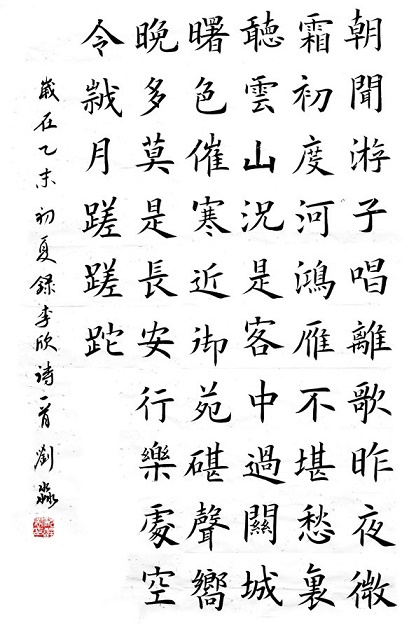 朝聞游子唱離歌昨夜微
霜初度河鴻雁不堪愁裏
聽雲山況是客中過關城
曙色催寒近御苑碪聲嚮
晚多莫是長安行樂處空
令歲月蹉蹉跎
歲在乙未初夏錄李欣诗一首 劉淼